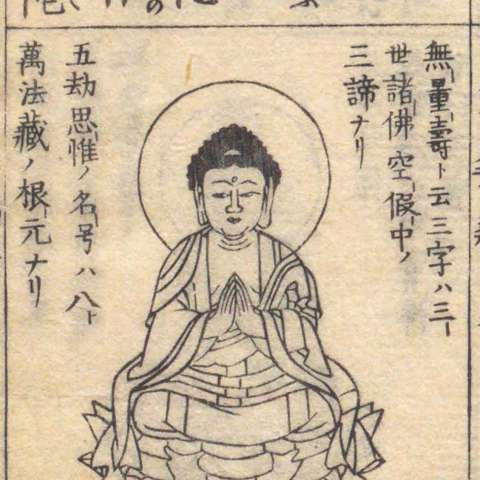 無量壽ト云三字ハ三
世諸佛空假中ノ
三諦ナリ
五劫思惟ノ名号ハ八
萬法藏ノ根元ナリ